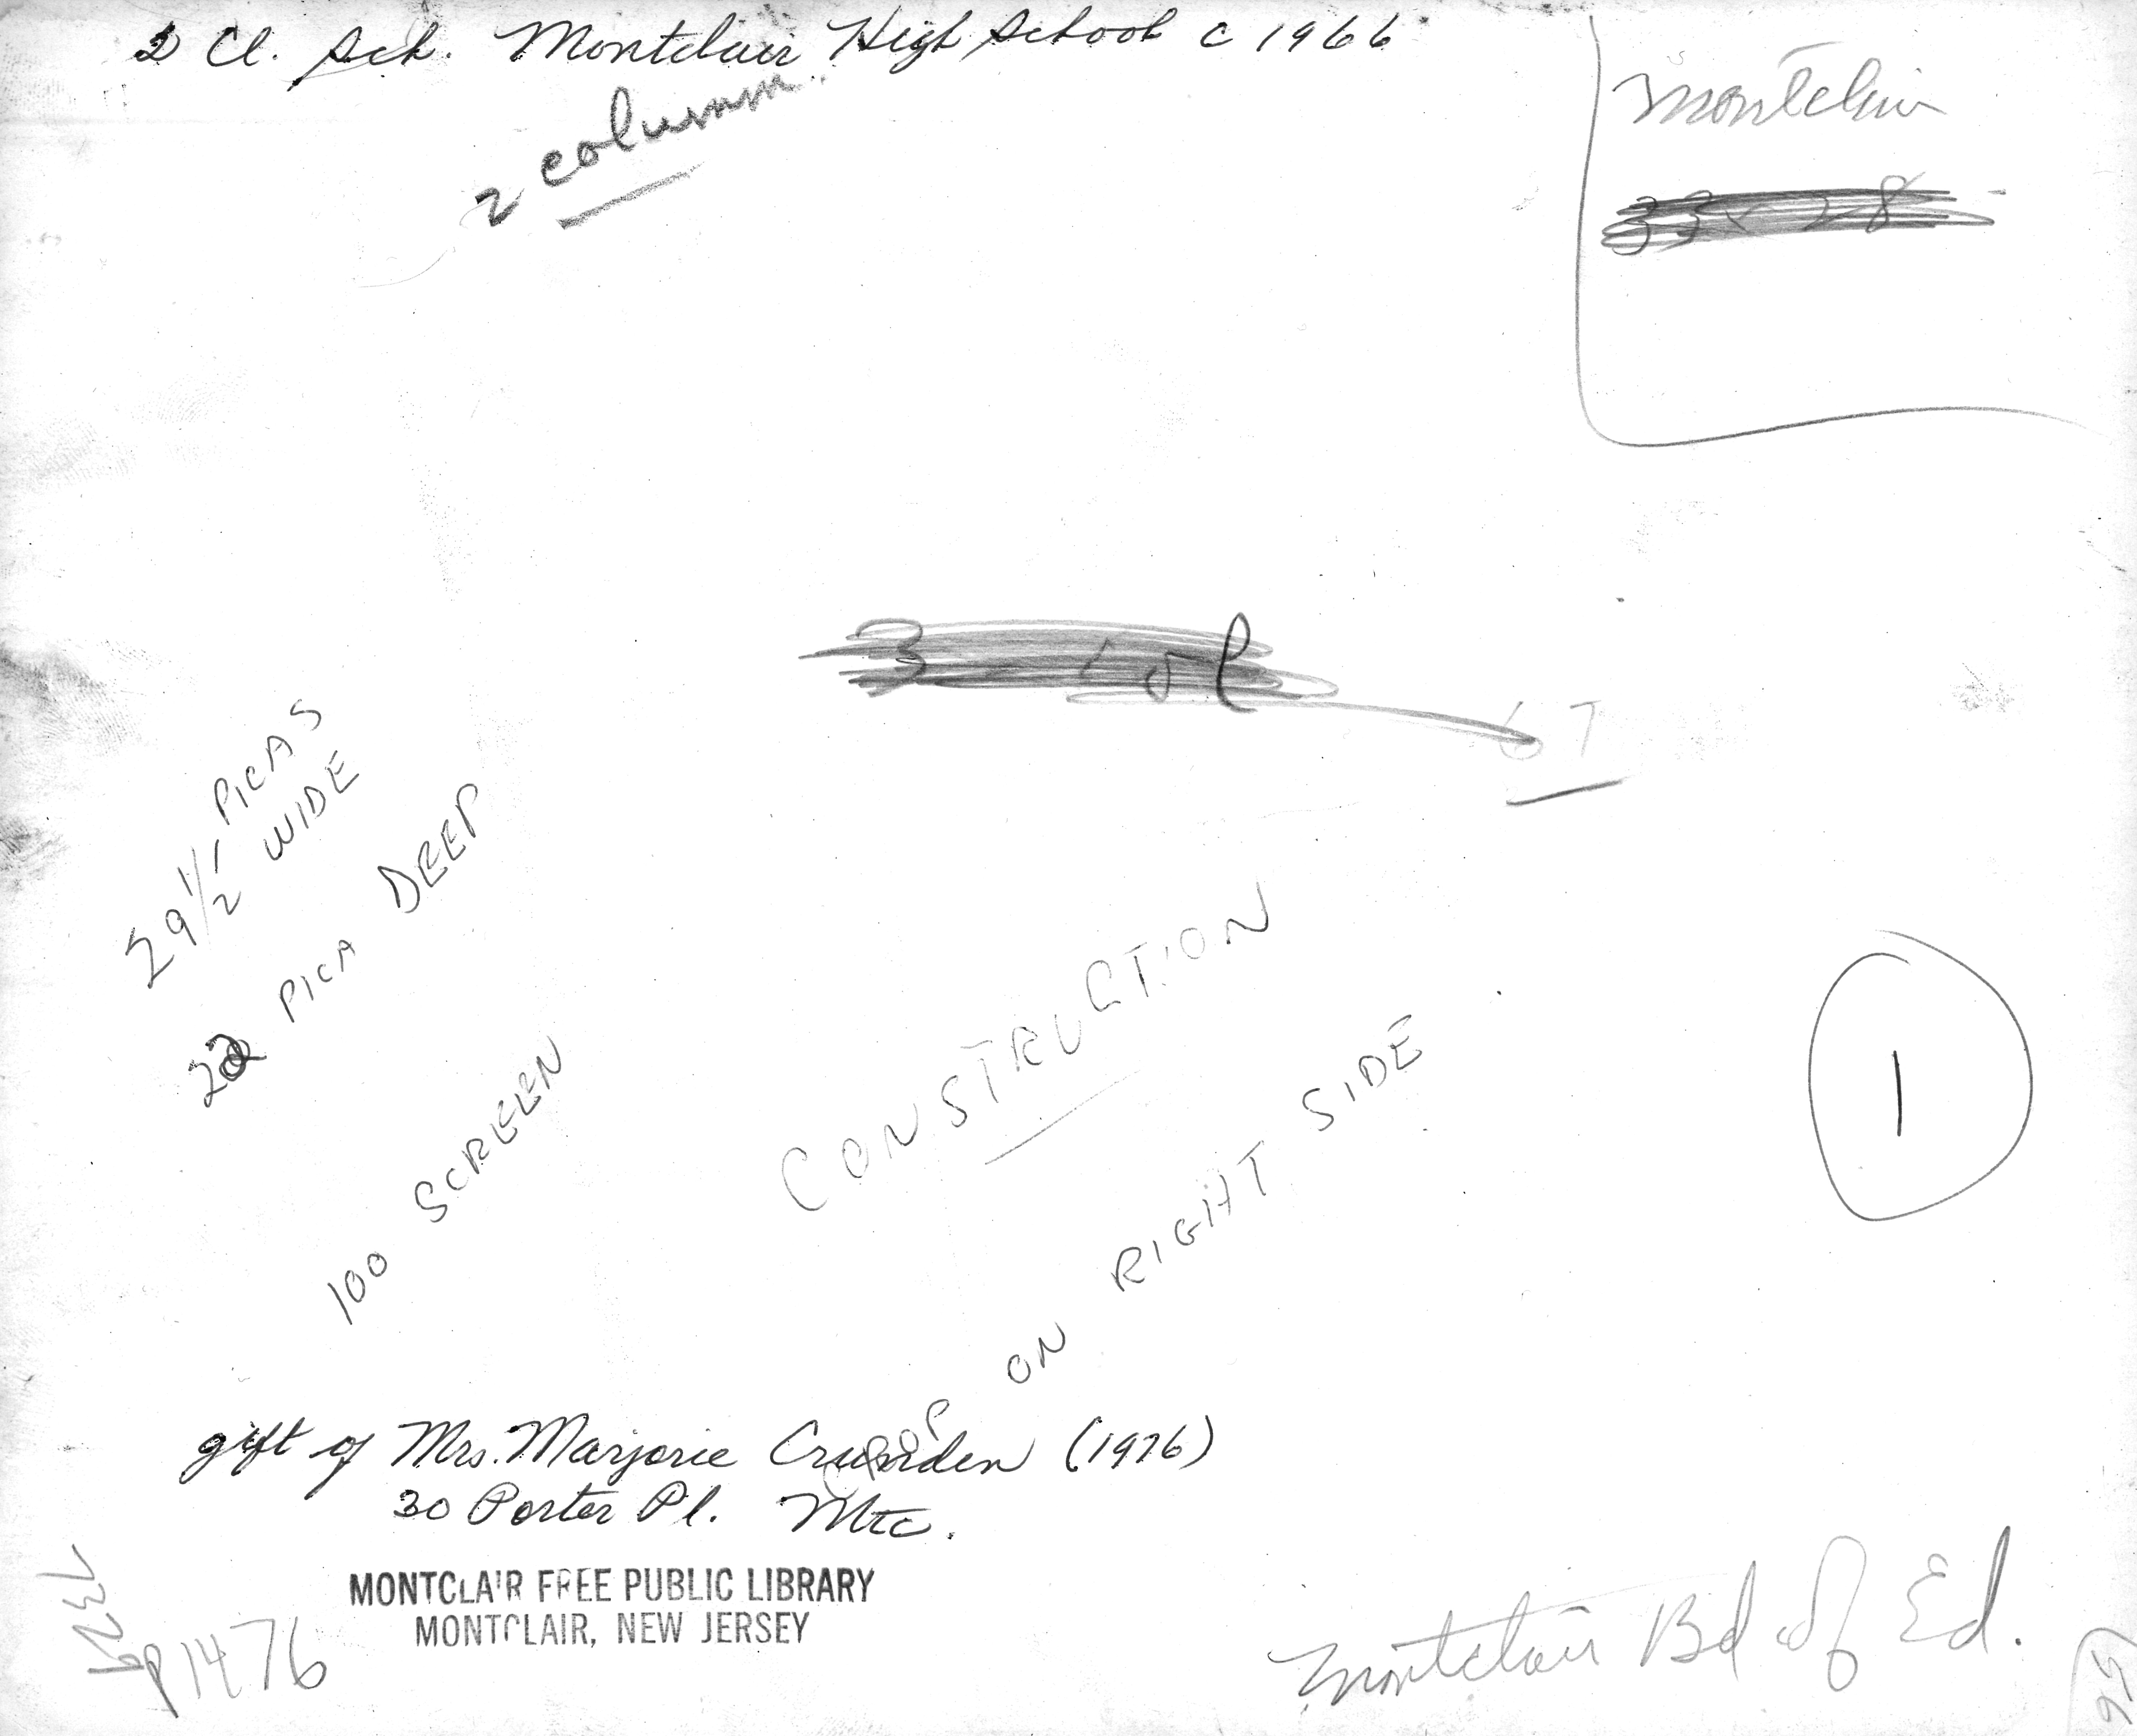 2 Cl. Sch. Montclair High School c 1966
2 column
Montclair
33 x 28
3 col
67
29 1/2 PICAS
WIDE
22 PICA DEEP
100 SCREEN
CONSTRUCTION
CROP ON RIGHT SIDE
1
gift of Mrs. Marjorie Crunden (1976)
30 Porter Pl. Mtc.
MONTCLAIR FREE PUBLIC LIBRARY
MONTCLAIR, NEW JERSEY
P1476
Montclair Bd of Ed.